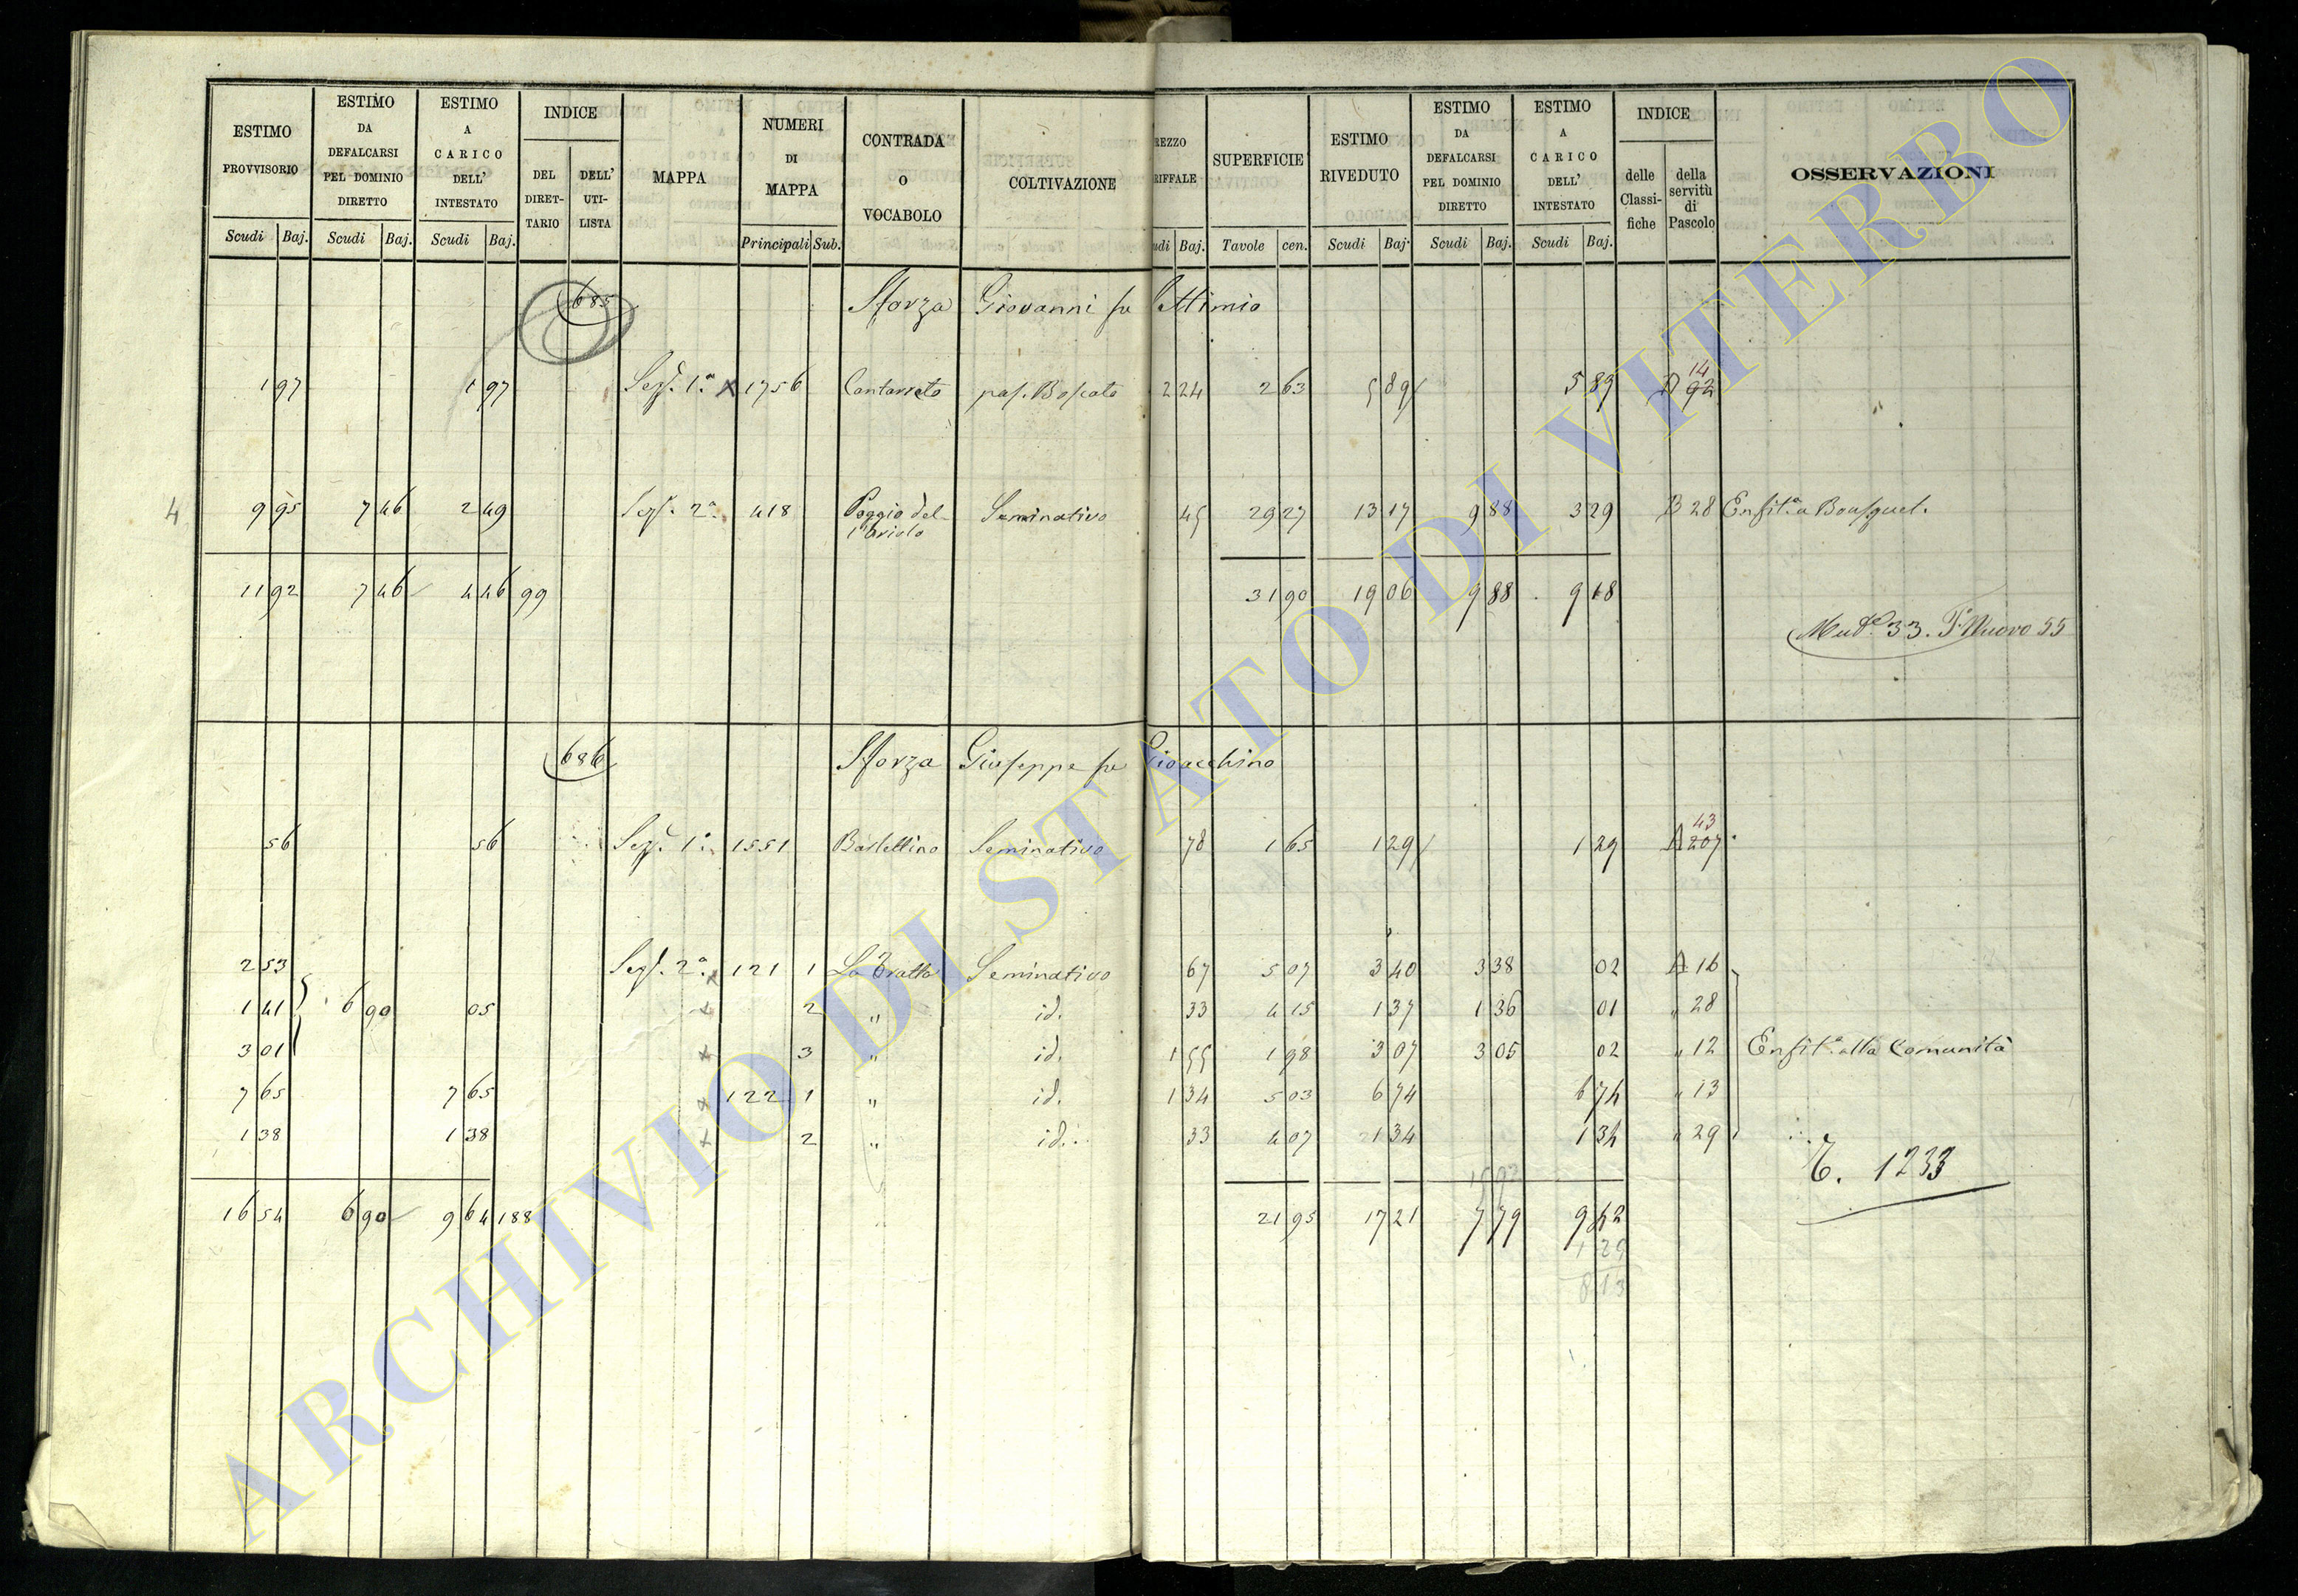 ESTIMO PROVVISORIO
Scudi Baj.
ESTIMO DA DEFALCARSI PEL DOMINIO DIRETTO
Scudi Baj.
ESTIMO A CARICO DELL' INTESTATO
Scudi Baj.
INDICE
DEL DIRETTARIO
DELL' UTILISTA
MAPPA
NUMERI DI MAPPA
Principali Sub.
CONTRADA O VOCABOLO
COLTIVAZIONE
REZZO RIFFALE
udi Baj.
SUPERFICIE
Tavole cen.
ESTIMO RIVEDUTO
Scudi Baj.
ESTIMO DA DEFALCARSI PEL DOMINIO DIRETTO
Scudi Baj.
ESTIMO A CARICO DELL' INTESTATO
Scudi Baj.
INDICE
delle Classifiche
della servitù di Pascolo
OSSERVAZIONI
685 Sforza Giovanni fu Settimio
14
1 97 1 97 Sez. 1a x 1756 pas. Boscato 2 24 2 63 5 89 5 89 A 92
4 9 95 7 46 2 49 Sez. 2a 418 Poggio del Seminativo 45 29 27 13 17 9 88 3 29 B 28
11 92 7 46 4 46 99 31 90 19 06 9 88 9 18
33. Nuovo 55
686 Sforza Giuseppe fu Gioacchino
43
56 56 Sez. 1a 1551 Seminativo 78 1 65 1 29 1 29 A 207
2 53 Sez. 2a x 121 1 Seminativo 67 5 07 3 40 3 38 02 A 16
1 41 6 90 05 x 2 " id. 33 4 15 1 37 1 36 01 " 28
3 01 x 3 " id. 1 55 1 98 3 07 3 05 02 " 12 Enfit.a alla Comunità
7 65 7 65 x 122 1 " id. 1 34 5 03 6 74 6 74 " 13
1 38 1 38 x 2 " id. 33 4 07 1 34 1 34 " 29
T. 1233
16 54 6 90 9 64 188 21 95 17 21 7 79 9 42
1 29
8 13
ARCHIVIO DI STATO DI VITERBO